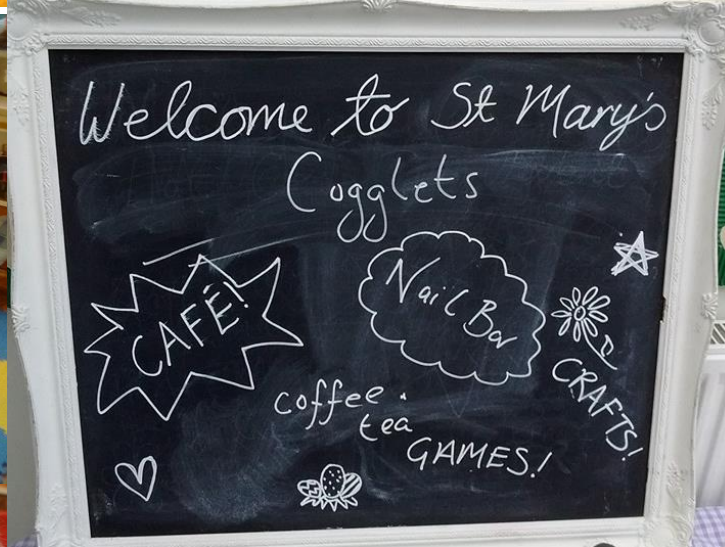 Welcome to St Mary's
Cogglets
CAFÉ!
Nail Bar
CRAFTS!
coffee.
tea
GAMES!